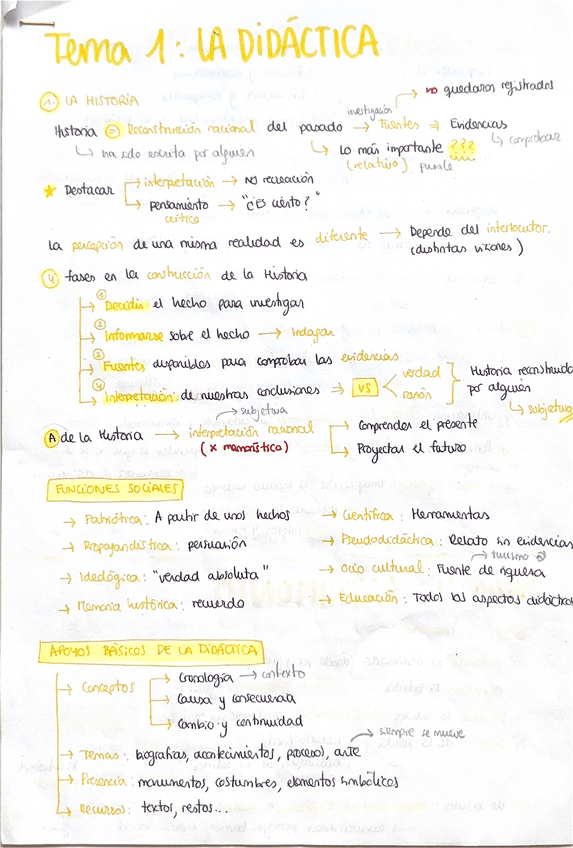 Tema 1: LA DIDÁCTICA
1. LA HISTORIA
no quedaron registrados
investigación
Historia = Reconstrucción racional del pasado → Fuentes ⇒ Evidencias
↳ ha sido escrita por alguien
↳ Lo más importante ???
↳ comprobar
(relativo) puzzle
★ Destacar → interpretación → no recreación
→ pensamiento → "¿ES cierto?"
crítico
La percepción de una misma realidad es diferente → Depende del interlocutor.
(distintas visiones)
4 fases en la construcción de la Historia
① Decidir el hecho para investigar
② Informarse sobre el hecho → Indagar
③ Fuentes disponibles para comprobar las evidencias
④ Interpretación de nuestras conclusiones ⇒ VS
verdad
razón
Historia reconstruida
por alguien
↳ subjetiva
→ subjetiva
A de la Historia → interpretación racional
(x memorística)
→ Comprender el presente
→ Proyectar el futuro
FUNCIONES SOCIALES
→ Patriótica: A partir de unos hechos
→ Científica: Herramientas
→ Propagandística: persuasión
→ Pseudodidáctica: Relato sin evidencias
→ turismo
→ Ideológica: "verdad absoluta"
→ Ocio cultural: Fuente de riqueza
→ Memoria histórica: recuerdo
→ Educación: Todos los aspectos didácticos
APOYOS BÁSICOS DE LA DIDÁCTICA
→ Conceptos
→ Cronología → contexto
→ Causa y consecuencia
→ Cambio y continuidad
→ siempre se mueve
→ Temas: biografías, acontecimientos, proceso, arte
→ Presencia: monumentos, costumbres, elementos simbólicos
→ Recursos: textos, restos...